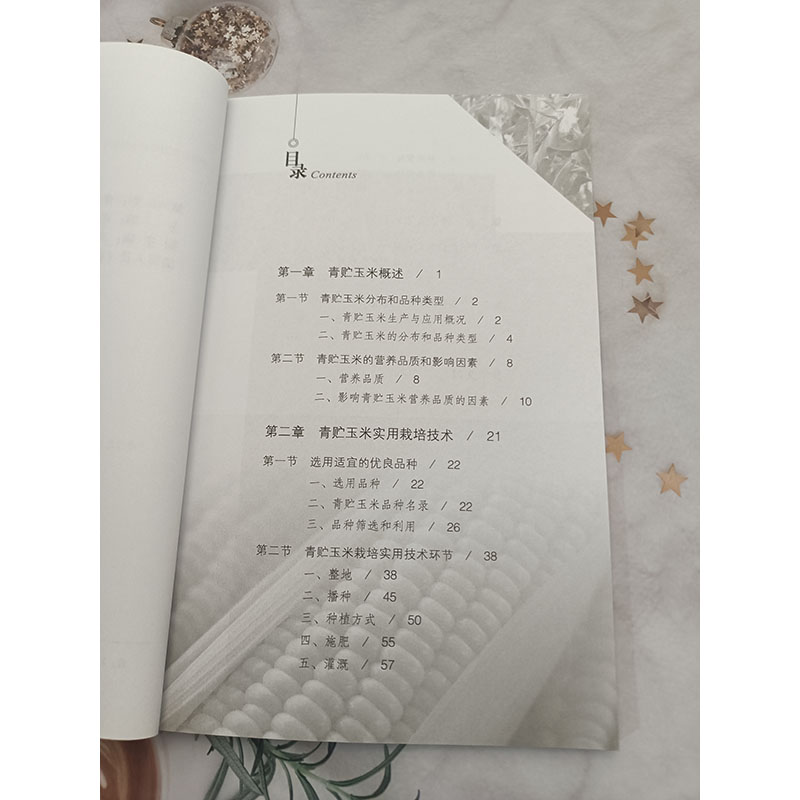 目录 Contents
第一章 青贮玉米概述 / 1
第一节 青贮玉米分布和品种类型 / 2
一、青贮玉米生产与应用概况 / 2
二、青贮玉米的分布和品种类型 / 4
第二节 青贮玉米的营养品质和影响因素 / 8
一、营养品质 / 8
二、影响青贮玉米营养品质的因素 / 10
第二章 青贮玉米实用栽培技术 / 21
第一节 选用适宜的优良品种 / 22
一、选用品种 / 22
二、青贮玉米品种名录 / 22
三、品种筛选和利用 / 26
第二节 青贮玉米栽培实用技术环节 / 38
一、整地 / 38
二、播种 / 45
三、种植方式 / 50
四、施肥 / 55
五、灌溉 / 57